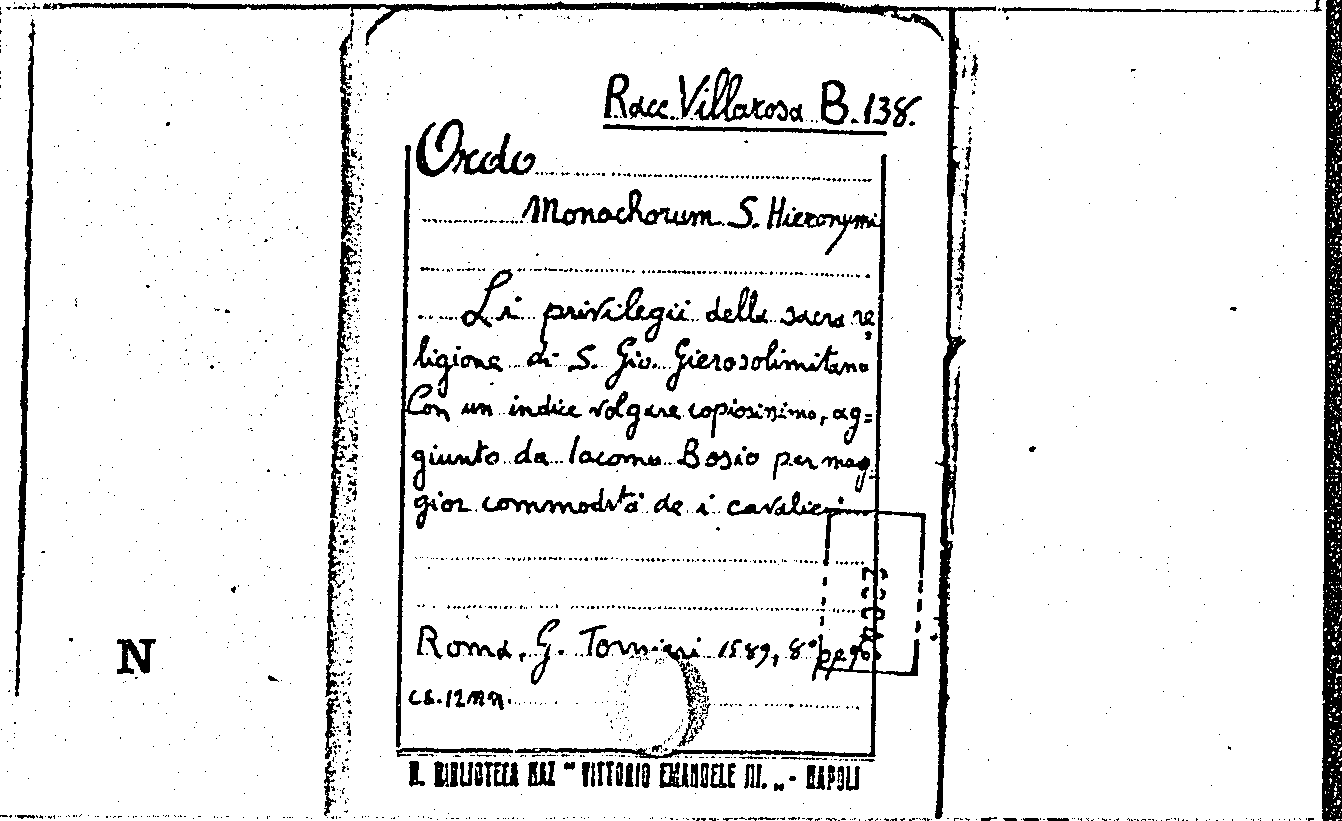 Racc. Villarosa B.138.
Ordo
Monachorum S. Hieronymi
Li privilegii della sacra re
ligione di S. Gio. Gierosolimitano
Con un indice volgare copiosissimo, ag=
giunto da Iacomo Bosio per mag
gior commodità de i cavalieri
Roma, G. Tornieri 1589, 8° pp.
cs. 12 nn.
R. BIBLIOTECA NAZ "VITTORIO EMANUELE III. „ - NAPOLI
N